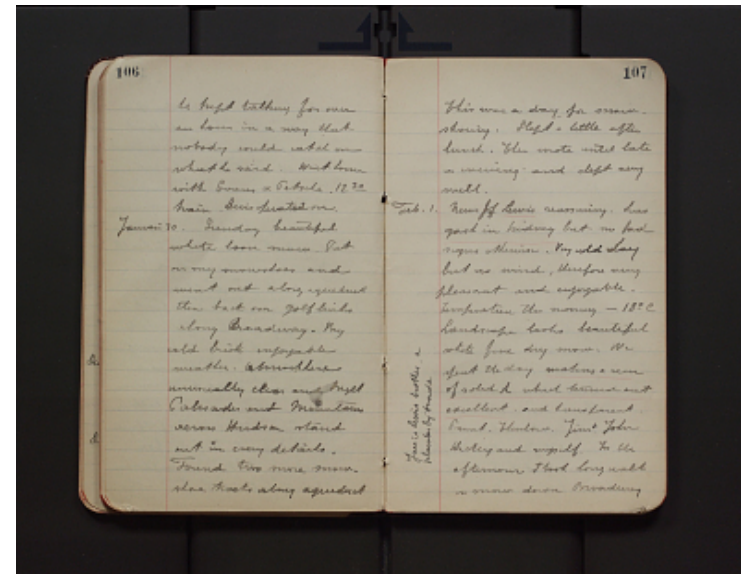 106
he kept talking for over
an hour in a way that
nobody could catch on
what he said. Went home
with Evans & 12 30
train
January 30. Sunday beautiful
white loose snow. Put
on my snowshoes and
went out along aqueduct
then back over golf links
along Broadway. Very
cold brisk enjoyable
weather. Atmosphere
unusually clear and bright
Palisades and Mountains
across Hudson stand
out in every details.
Found two more snow-
shoe tracks along aqueduct
107
This was a day for snow-
shoeing. Slept a little after
lunch. Then wrote until late
in evening and slept very
well.
Feb. 1. News of Lewis reassuring. has
gash in kidney but no bad
Very cold day
but no wind, therefore very
pleasant and enjoyable.
Temperature this morning - 18° C
Landscape looks beautiful
white fine dry snow. We
spent the day making a run
of solid A which turned out
excellent and transparent
Thurlow, John
and myself. In the
afternoon I took long walk
in snow down Broadway
Lewis brother, a